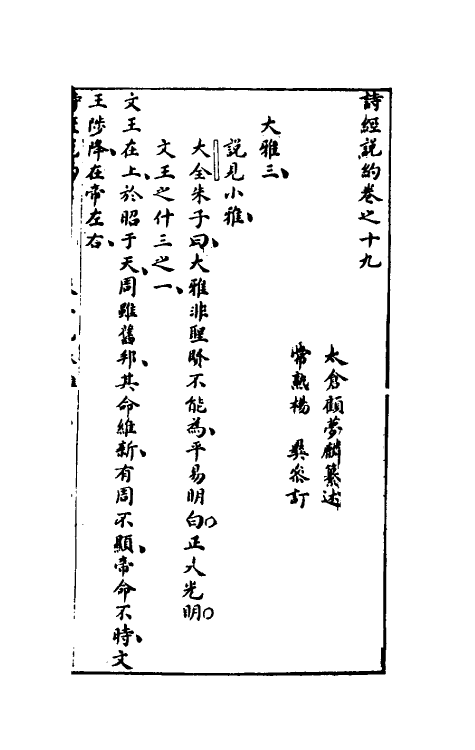 詩經説約卷之十九
太倉顧夢麟纂述
常熟楊 彝參訂
大雅三、
説見小雅、
大全朱子曰、大雅非聖賢不能為、平易明白○正大光明○
文王之什三之一、
文王在上、於昭于天、周雖舊邦、其命維新、有周不顯、帝命不時、文
王陟降、在帝左右、